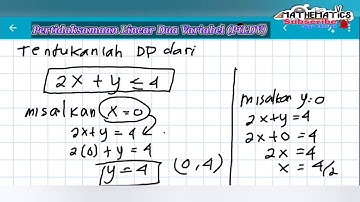 MATHEMATICS
Subscribe
Pertidaksamaan Linear Dua Variabel (PtLDV)
Tentukanlah DP dari
2x + y ≤ 4
misalkan x = 0
2x + y = 4
2(0) + y = 4
y = 4
(0, 4)
misalkan y = 0
2x + y = 4
2x + 0 = 4
2x = 4
x = 4/2